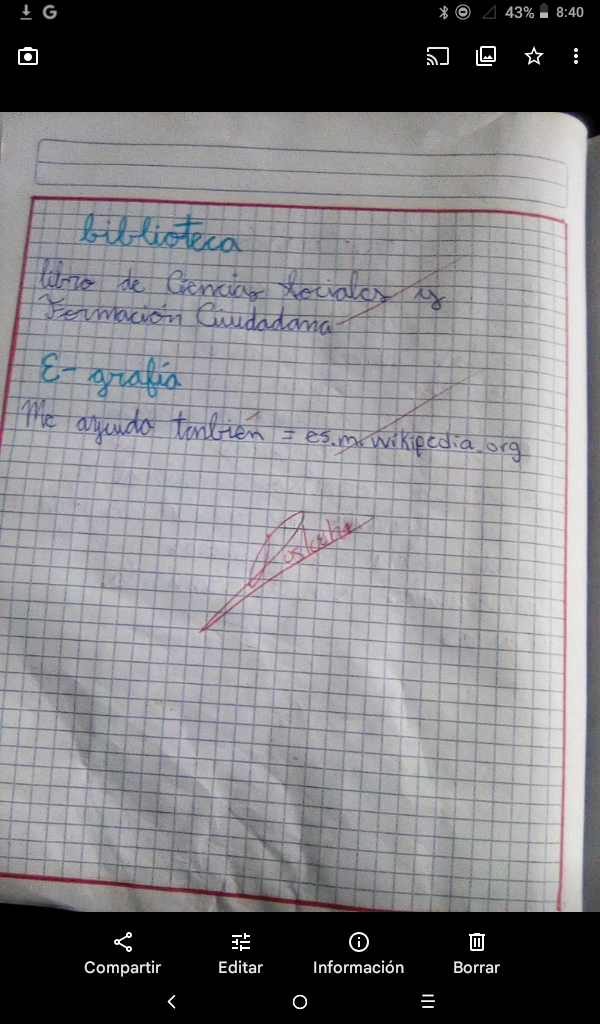 43% 8:40
biblioteca
libro de Ciencias Sociales y
Formación Ciudadana
E-grafía
Me ayudo tanbién = es.m.wikipedia.org
Compartir Editar Información Borrar